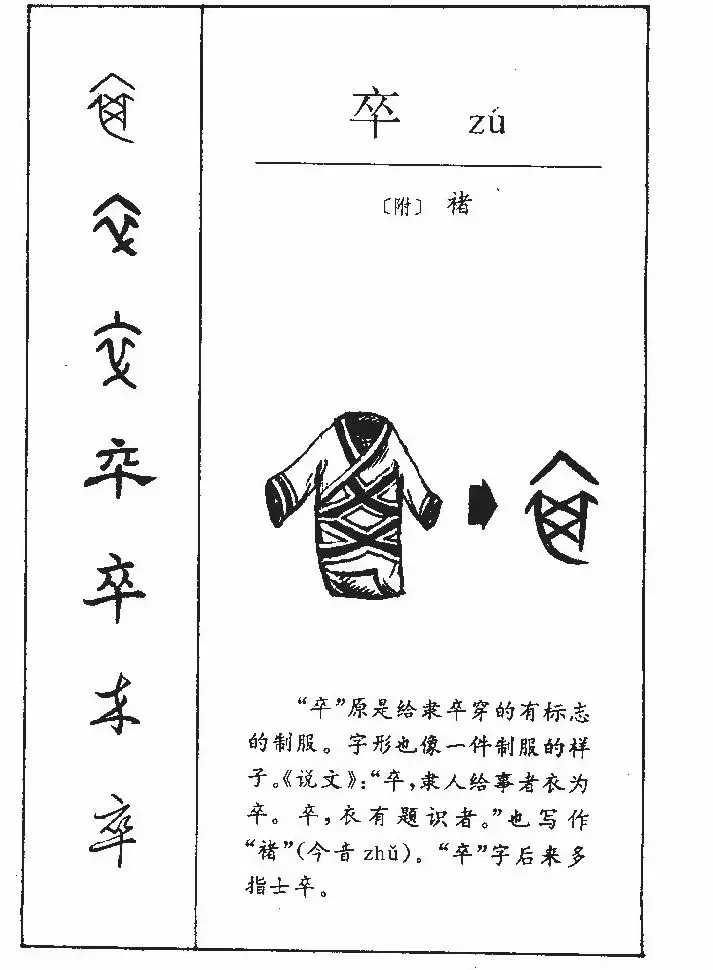 卒 zú
〔附〕 褚
“卒”原是给隶卒穿的有标志
的制服。字形也像一件制服的样
子。《说文》：“卒，隶人给事者衣为
卒。卒，衣有题识者。”也写作
“褚”(今音 zhǔ)。“卒”字后来多
指士卒。
卒
卒
卒
卒